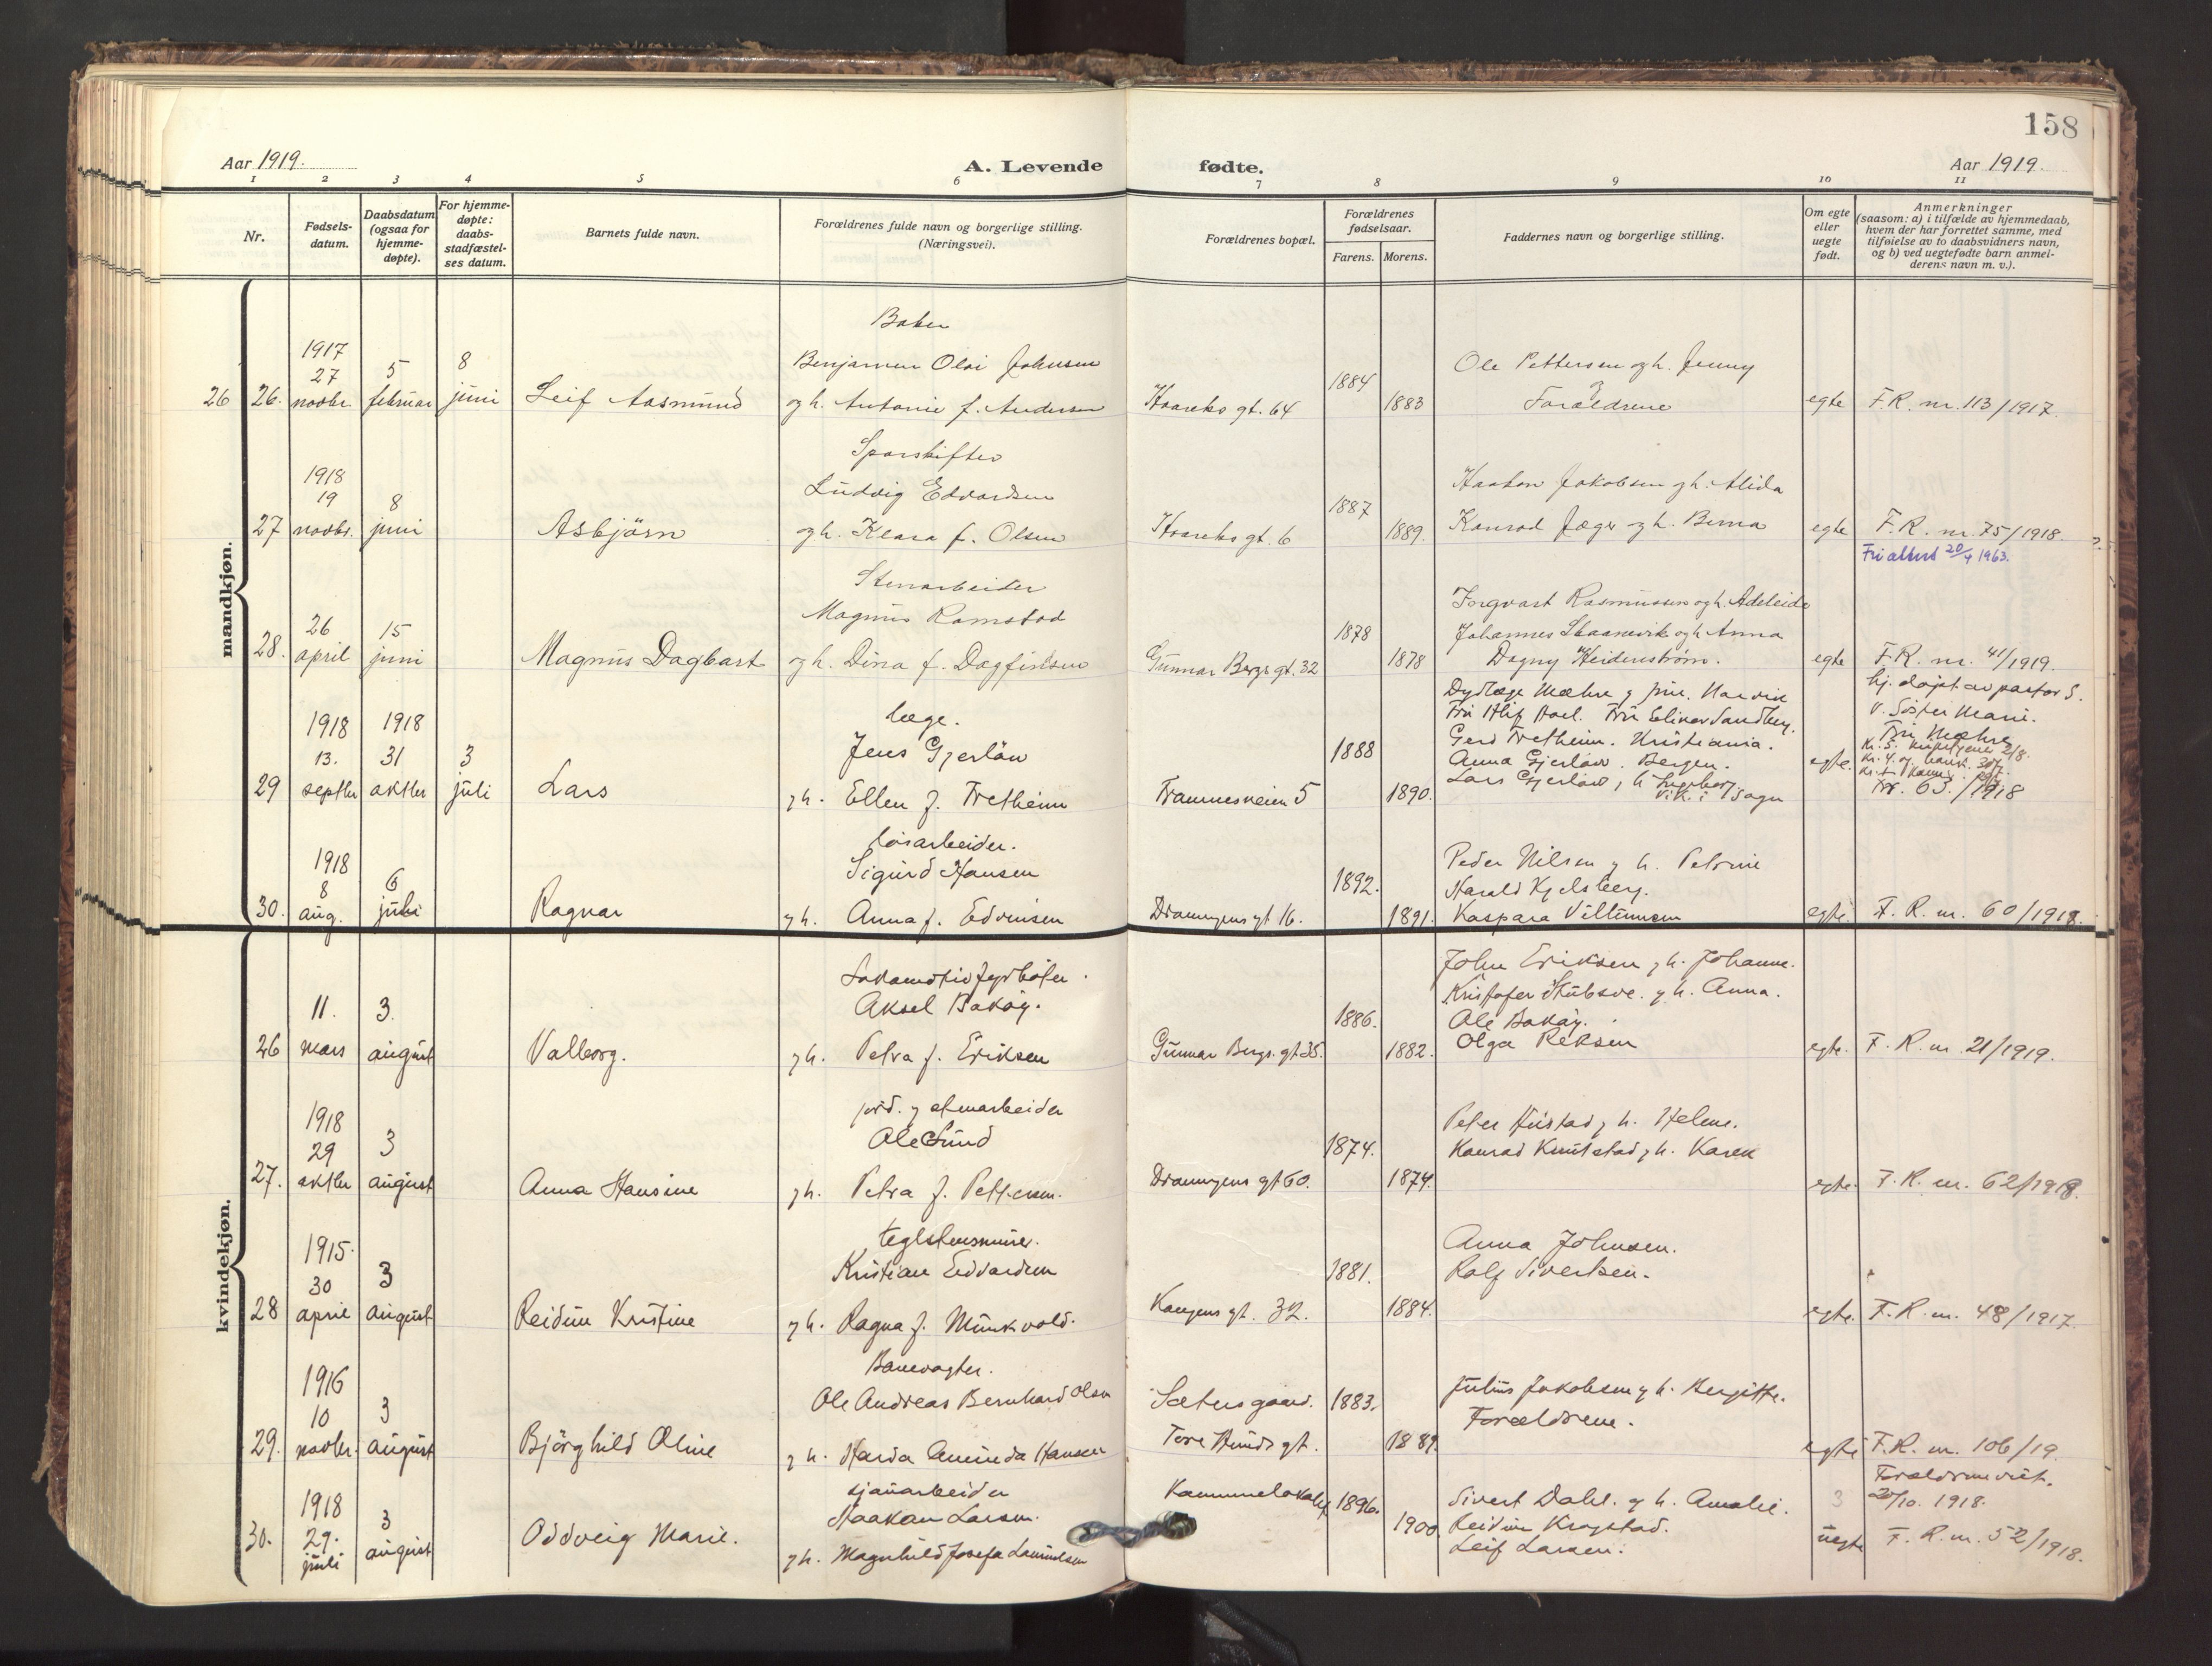 158
Aar 1919.
A. Levende fødte.
Aar 1919.
1 2 3 4 5 6 7 8 9 10 11
Nr.
Fødsels-
datum.
Daabsdatum
(ogsaa for
hjemme-
døpte).
For hjemme-
døpte:
daabs-
stadfæstel-
ses datum.
Barnets fulde navn.
Forældrenes fulde navn og borgerlige stilling.
(Næringsvei).
Forældrenes bopæl.
Forældrenes
fødselsaar.
Farens. Morens.
Faddernes navn og borgerlige stilling.
Om egte
eller
uegte
født.
Anmerkninger
(saasom: a) i tilfælde av hjemmedaab,
hvem der har forrettet samme, med
tilføielse av to daabsvidners navn,
og b) ved uegtefødte barn anmel-
derens navn m. v.).
mandkjøn.
Baker
1917
27 5 8 Benjamin Olai Johnsen 1884 Ole Pettersen og h. Jenny
26 26. novbr. februar juni Leif Aasmund og h. Antonie f. Andersen Haareks gt. 64 1883 Forældrene egte F.R. nr. 113/1917.
Sporskifter
1918
19 8 Ludvig Edvardsen 1887 Haakon Jakobsen og h. Alida
27 novbr. juni Asbjörn og h. Klara f. Olsen Haareks gt. 6 1889. Konrad Jæger og h. Berna egte F.R. nr. 75/1918.
Friattest 20/4 1963.
Stenarbeider
26 15 Magnus Ramstad 1878 Ingvart Rasmussen og h. Adeleide
Johannes Skaanevik og h. Anna
28. april juni Magnus Dagbart og h. Dina f. Dagfinsen Gunnar Bergs gt. 32 1878 Dagny Heidenstrøm. egte F.R. nr. 41/1919.
Dyrlæge Mæhre og frue. Narvik hj. døpt av pastor S.
læge. v. Søster Marie.
1918 1918 Jens Gjerløw 1888 Gerd Tretheim. Kristiania. Fru Mæhre
13. 31 3 Anna Gjerløw. Bergen.
29 septbr oktbr juli Lars og h. Ellen f. Tretheim Framnesveien 5 1890. Lars Gjerløw, h. Ingeborg, Vik i Sogn egte. Fr. 65./1918
løsarbeider.
1918
8 6 Sigurd Hansen 1892. Peder Nilsen og h. Petrine
Harald Kjelsberg.
30. aug. juli Ragnar og h. Anna f. Edvinsen Dronningens gt 16. 1891. Kaspara Villumsen egte. F.R. nr. 60/1918.
kvindekjøn.
Lokomotivfyrbøter.
11. 3. Aksel Bakøy. 1886. John Eriksen og h. Johanne.
Kristofer Stubsve. og h. Anna.
Ole Bakøy.
26 mars august Valborg. og h. Petra f. Eriksen Gunnar Bergs. gt 35. 1882. Olga Reksen egte. F.R. nr. 21/1919.
jord. og stenarbeider
1918
29 3 Ole Sund 1874. Peter Hustad og h. Helene.
Konrad Knutstad og h. Karen
27. oktbr august Anna Hansine og h. Petra f. Pettersen. Dronningens gt 60. 1874. egte. F.R. nr. 62/1918.
teglstensmurer.
1915.
30 3 Kristian Edvardsen 1881. Anna Johnsen.
Rolf Sivertsen.
28 april august Reidun Kristine og h. Ragna f. Munkvold. Kongens gt. 32. 1884. egte. F.R. nr. 48/1917.
Banevogter.
1916
10 3 Ole Andreas Bernhard Olsen Sætersgaard. 1883. Julius Jakobsen og h. Bergitte.
Forældrene.
29. novbr. august Björghild Oline og h. Harda Aminda Hansen Tore Hunds gt. 1889. egte F.R. nr. 106/19.
sjauarbeider Forældrene viet.
1918 20/10. 1918.
29. 3 Haakon Larsen. 1896. Sivert Dahl. og h. Amalie.
30. juli august Oddveig Marie. og h. Magnhild Josefa Samuelsen 1900 Reidun Krogstad. uegte F.R. nr. 52/1918.
Leif Larsen.